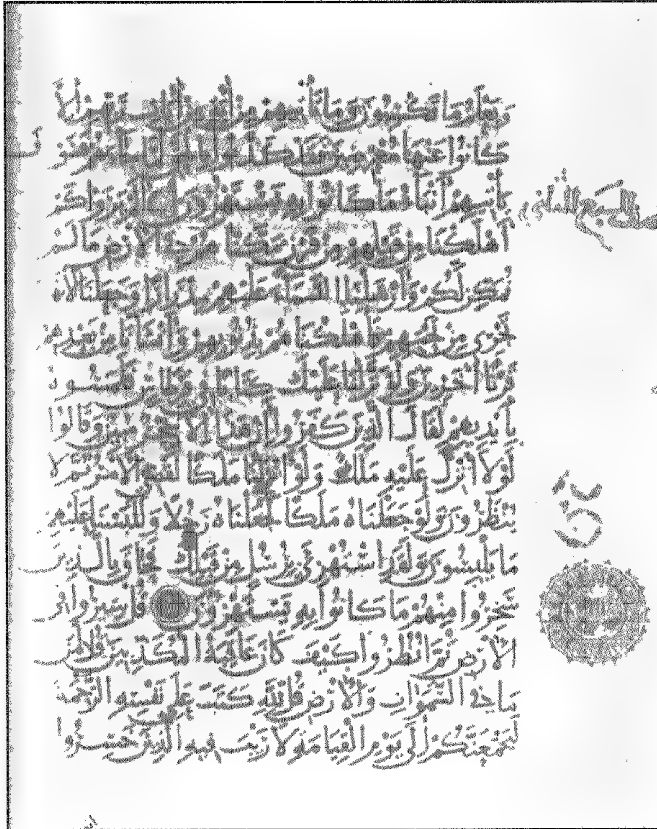 ويعلم ما تكسبون وما تأتيهم من آية من آيات ربهم إلا
كانوا عنها معرضين فقد كذبوا بالحق لما جاءهم فسوف
يأتيهم أنباء ما كانوا به يستهزؤون ألم يروا كم
أهلكنا من قبلهم من قرن مكناهم في الأرض ما لم
نمكن لكم وأرسلنا السماء عليهم مدرارا وجعلنا الأنهار
تجري من تحتهم فأهلكناهم بذنوبهم وأنشأنا من بعدهم
قرنا آخرين ولو نزلنا عليك كتابا في قرطاس فلمسوه
بأيديهم لقال الذين كفروا إن هذا إلا سحر مبين وقالوا
لولا أنزل عليه ملك ولو أنزلنا ملكا لقضي الأمر ثم لا
ينظرون ولو جعلناه ملكا لجعلناه رجلا وللبسنا عليهم
ما يلبسون ولقد استهزئ برسل من قبلك فحاق بالذين
سخروا منهم ما كانوا به يستهزؤون قل سيروا في
الأرض ثم انظروا كيف كان عاقبة المكذبين قل لمن
ما في السموات والأرض قل لله كتب على نفسه الرحمة
ليجمعنكم إلى يوم القيامة لا ريب فيه الذين خسروا